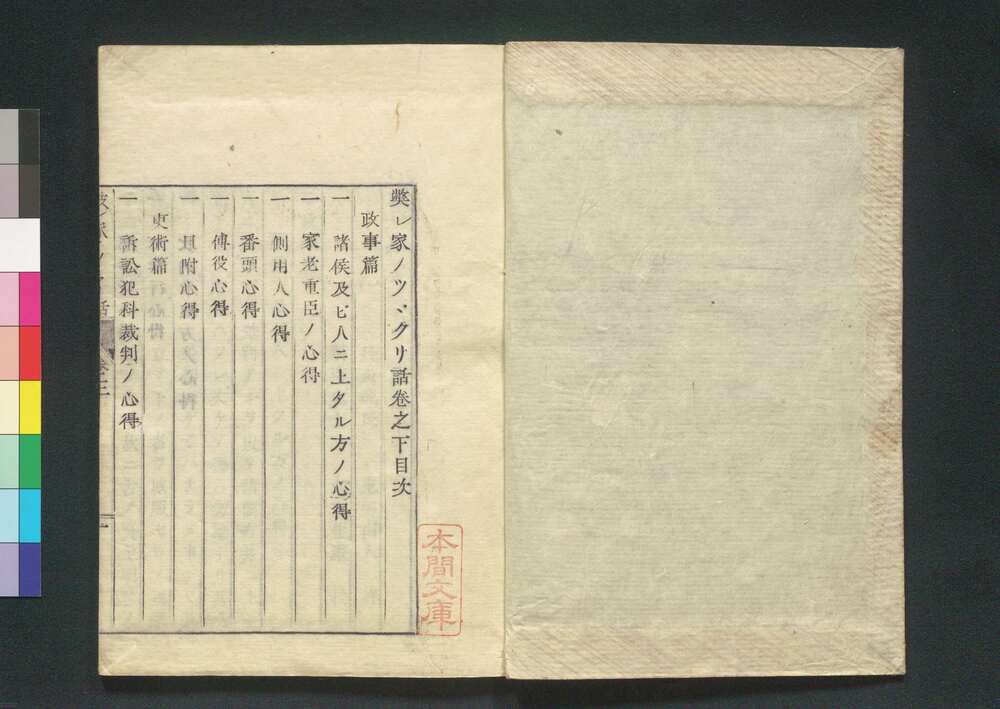 獘レ家ノツヾクリ話卷之下目次
政事篇
一 諸侯及ビ人ニ上タル方ノ心得
一 家老重臣ノ心得
一 側用人心得
一 番頭心得
一 傅役心得
一 目附心得
吏術篇
一 訴訟犯科裁判ノ心得
本間文庫